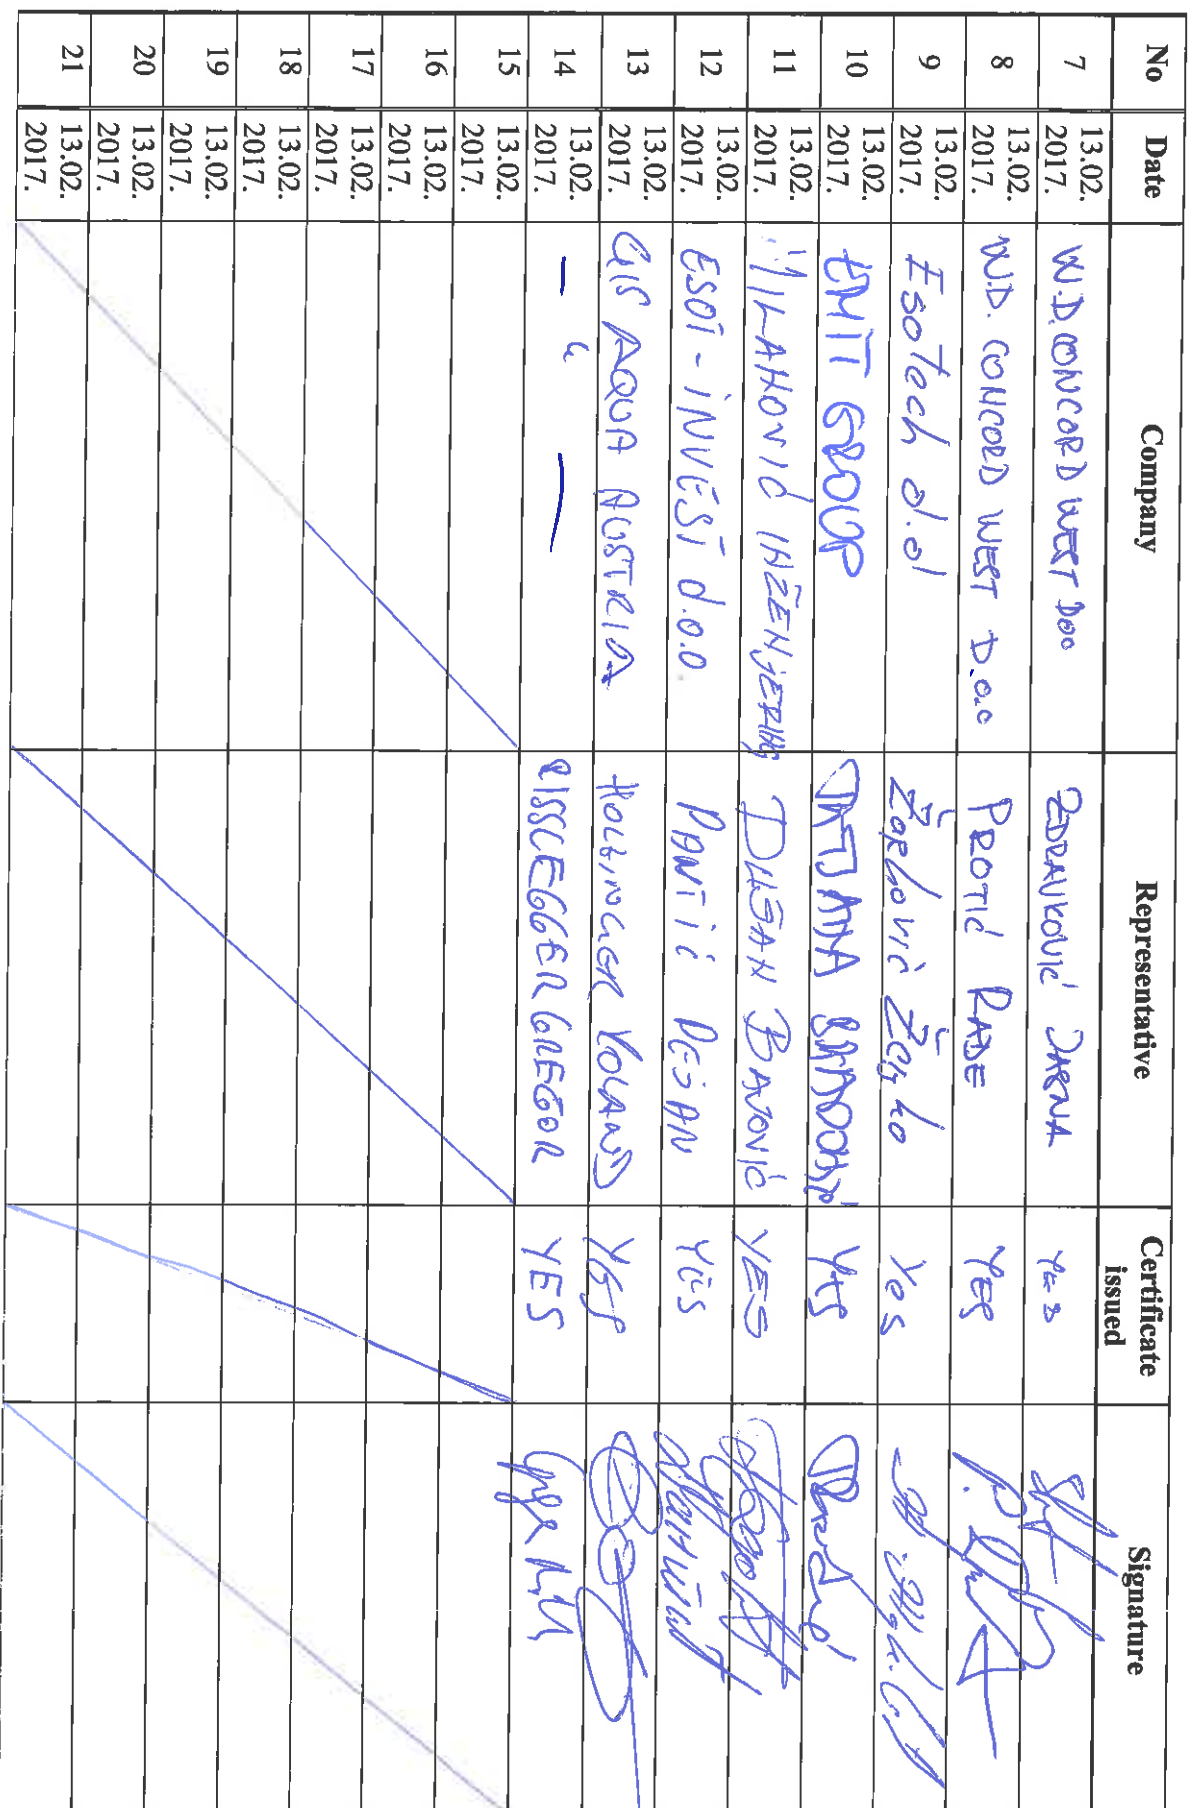 No Date Company Representative Certificate issued Signature
7 13.02. 2017. W.D. CONCORD WEST DOO ZDRAVKOVIĆ JASNA YES
8 13.02. 2017. W.D. CONCORD WEST D.O.O PROTIĆ RADE YES
9 13.02. 2017. Esotech d.d Žarković Željko Yes
10 13.02. 2017. EMIT GROUP TATJANA YES
11 13.02. 2017. MILANOVIĆ INŽENJERING DUŠAN BAJOVIĆ YES
12 13.02. 2017. ESOT-INVEST d.o.o. PANTIĆ DEJAN YES
13 13.02. 2017. GIS AQUA AUSTRIA HOLZINGER ROLAND YES
14 13.02. 2017. — " — RISSCEGGER GREGOR YES
15 13.02. 2017.
16 13.02. 2017.
17 13.02. 2017.
18 13.02. 2017.
19 13.02. 2017.
20 13.02. 2017.
21 13.02. 2017.